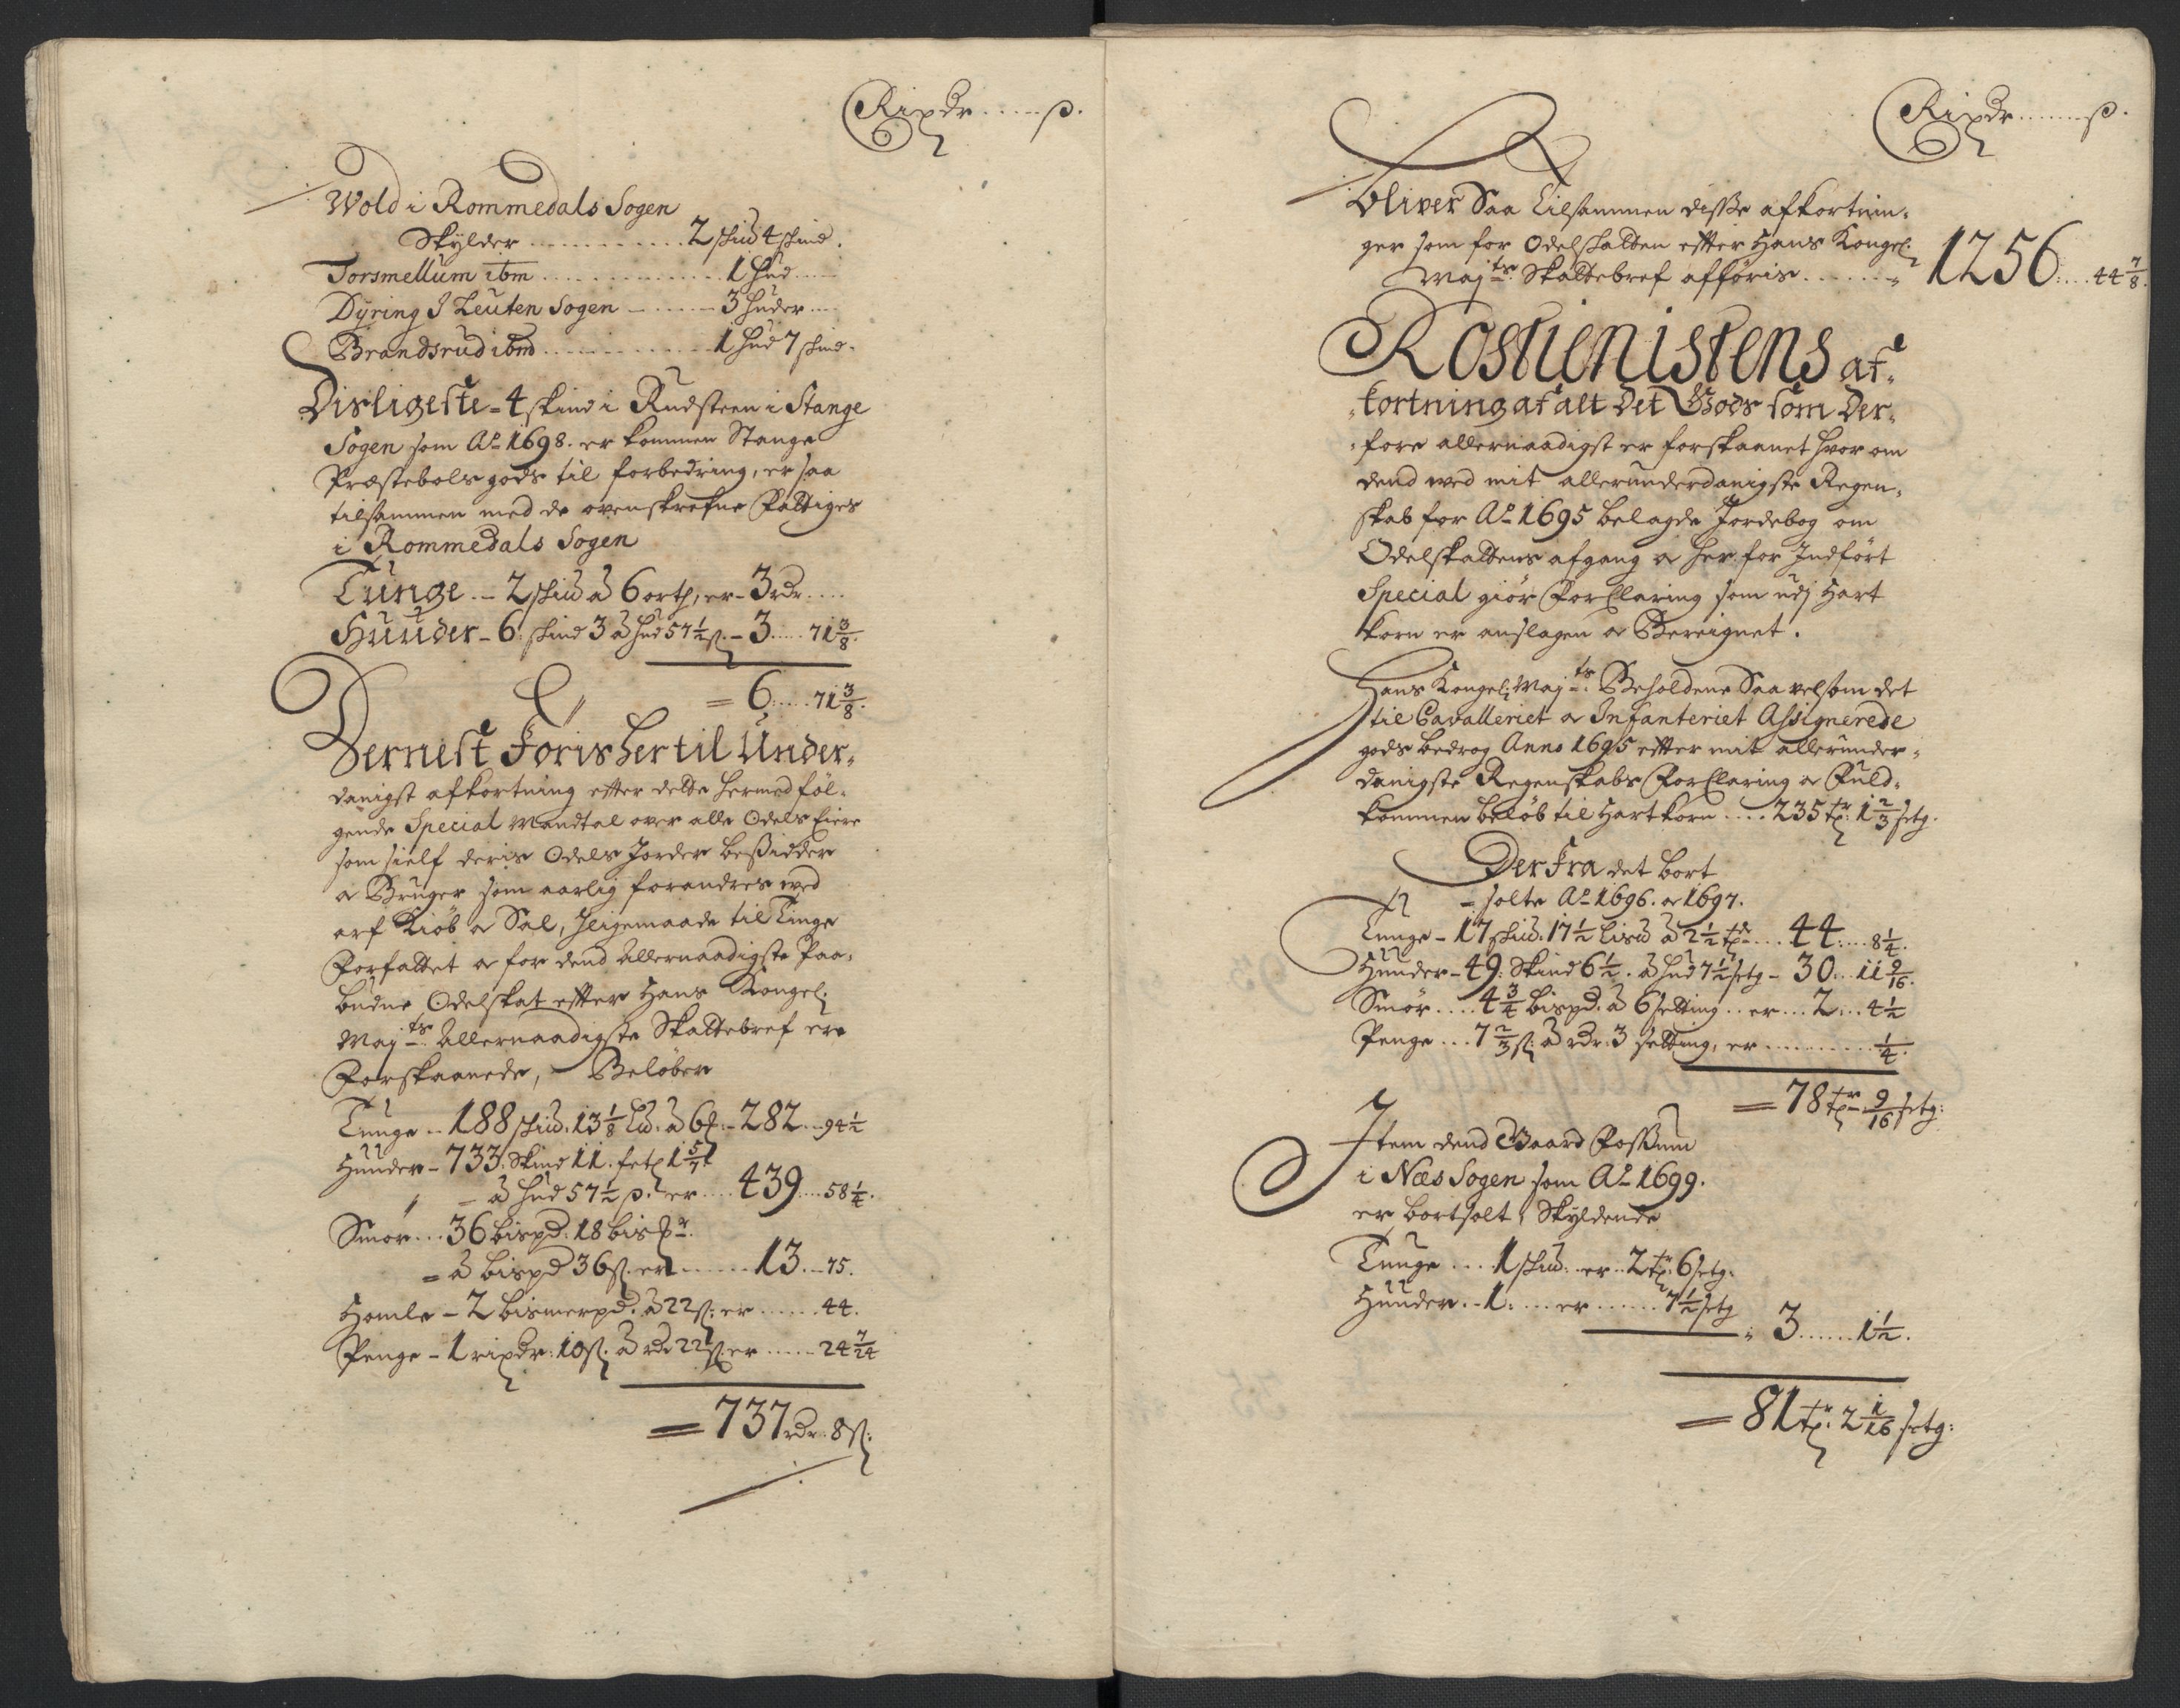 Rixdr ..... ß.
Wold i Rommedals Sogen
Skylder ............ 2 skiu 4 skind.
Torsmellum ibm ............ 1 hud ....
Dyring I Leuten Sogen - ..... - 3 huder ....
Brandsrud ibm ............ 1 hud 7 skind.
Disligeste = 4 skind i Rudsteen i Stange
Sogen som Ao 1698. er kommen Stange
Præstebols gods til forbedring, er saa
tilsammen med de ovenskrefne Fattiges
i Rommedals Sogen
Tunge .. - 2 skiu a 6 ort, er - 3 rdr ....
Huuder - 6: skind 3 a hud 57 1/2 ß. - 3 ..... 71 3/8.
= 6 ..... 71 3/8.
Dernest Föris her til Under-
danigst afkortning efter dette hermed föl-
gende Special Mandtal over alle Odels Eiere
som sielf deris Odels Jorder besidder
og Bruger som aarlig forandres ved
arf Kiöb og Sal, Iligemaade til Tinge
Forfattet og for dend Allernaadigste Paa-
budne Odelskat efter Hans Kongel:
Majts: Allernaadigste Skattebref ere
Forskaanede, Beløber
Tunge .. 188 skiu. 13 1/8 Lu. a 6 - 282 .. 94 1/2
Huuder - 733. Skind 11. 1 5/7
- a hud 57 1/2 ß. er .... 439 .... 58 1/4.
Smör ... 36 bispd. 18
= a bispd 36 ß. er ...... 13 ... 75.
Homle - 2 bismerpd. a 22 ß: er ...... 44.
Penge - 1 rixdr: 10 ß. a rdr 22 ß er ..... 24 7/24
= 737 rdr. 8 ß:
Rixdr ..... ß.
Bliver Saa Tilsammen disse afkortnin-
ger som for Odelskatten efter Hans Kongel:
Majts: Skattebref afföris ...... 1256 .... 44 7/8.
Rostienistens af-
kortning af alt Det Gods som Der-
fore allernaadigst er forskaanet hvor om
dend ved mit allerunderdanigste Regen-
skab for Ao 1695 belagde Jordebog om
Odelskattens afgang og her for Indfört
Special giör Forklaring som udj Hart
korn er anslagen og Bereignet.
Hans Kongel: Majts: Beholdene Saavelsom det
til Cavalleriet og Infanteriet Assignerede
gods bedrog Anno 1695 efter mit allerunder-
danigste Regenskabs Forklaring og Fuld-
kommen beløb til Hartkorn .... 235 tr: 1 2/3 setg.
Der fra det bort
= solte Ao 1696. og 1697.
Tunge - 17 skiu. 17 1/2 Lisu a 2 1/2 .... 44 .... 8 1/4.
Huuder - 49: Skind 6 1/2. a hud 7 1/2 setg - 30 ... 11 9/16.
Smör .... 4 3/4 bispd. a 6 setting .. er ... 2 ... 4 1/2
Penge ... 7 2/3 ß. a rdr. 3 setting, er ......... 1/4.
= 78 tr 9/16 setg:
Item dend Gaard Fossum
i Næs Sogen som Ao 1699.
er bortsolt, Skyldende
Tunge ... 1 skiu: er .. 2 tr: 6 setg.
Huuder. - 1: .... er ...... 7 1/2 setg
3 ...... 1 1/2.
= 81 tr. 2 1/16 setg: